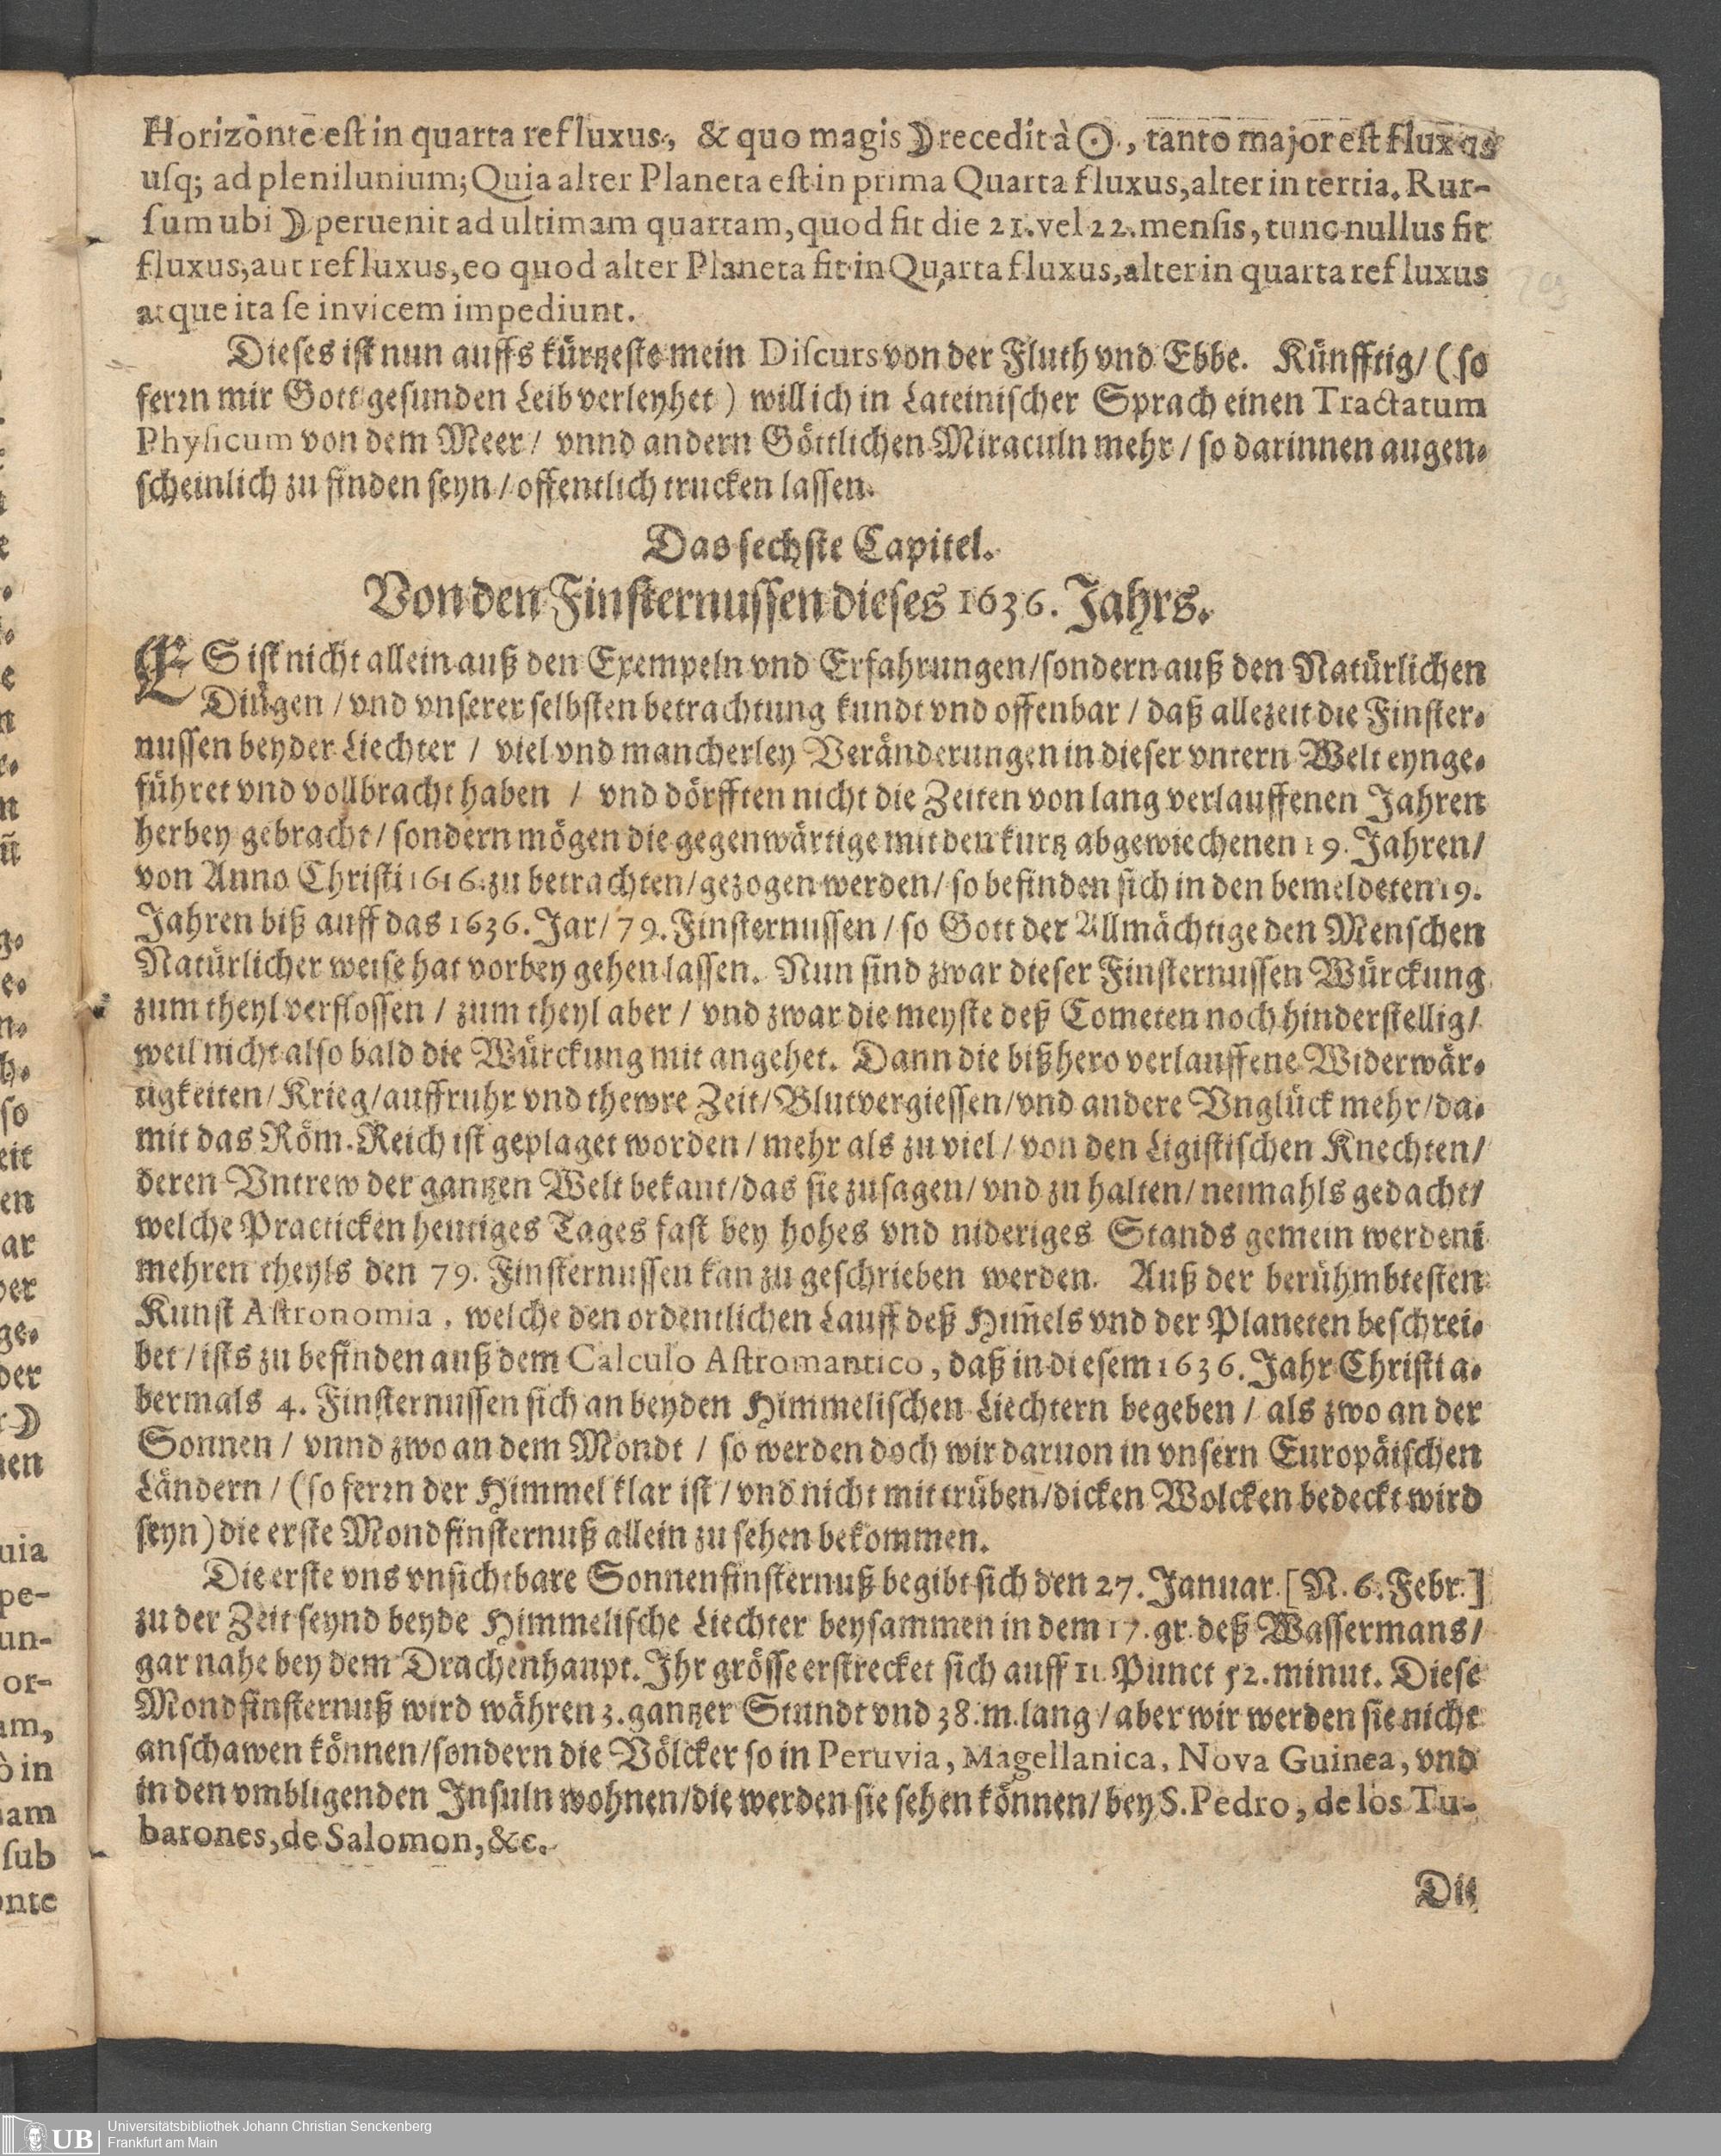 Horizonte est in quarta refluxus, & quo magis ☽ recedit à ☉, tanto major est fluxus
usq; ad plenilunium; Quia alter Planeta est in prima Quarta fluxus, alter in tertia. Rur-
sum ubi ☽ peruenit ad ultimam quartam, quod fit die 21. vel 22. mensis, tunc nullus fit
fluxus, aut refluxus, eo quod alter Planeta fit in Quarta fluxus, alter in quarta refluxus
atque ita se invicem impediunt.
Dieses ist nun auffs kürtzeste mein Discurs von der Fluth vnd Ebbe. Künfftig / (so
ferrn mir Gott gesunden Leib verleyhet) will ich in Lateinischer Sprach einen Tractatum
Physicum von dem Meer / vnnd andern Göttlichen Miraculn mehr / so darinnen augen-
scheinlich zu finden seyn / offentlich trucken lassen.
Das sechste Capitel.
Von den Finsternussen dieses 1636. Jahrs.
ES ist nicht allein auß den Exempeln vnd Erfahrungen / sondern auß den Natürlichen
Dingen / vnd vnserer selbsten betrachtung kundt vnd offenbar / daß allezeit die Finster-
nussen beyder Liechter / viel vnd mancherley Veränderungen in dieser vntern Welt eynge-
führet vnd vollbracht haben / vnd dörfften nicht die Zeiten von lang verlauffenen Jahren
herbey gebracht / sondern mögen die gegenwärtige mit den kurtz abgewiechenen 19. Jahren /
von Anno Christi 1616. zu betrachten / gezogen werden / so befinden sich in den bemeldeten 19.
Jahren biß auff das 1636. Jar / 79. Finsternussen / so Gott der Allmächtige den Menschen
Natürlicher weise hat vorbey gehen lassen. Nun sind zwar dieser Finsternussen Würckung
zum theyl verflossen / zum theyl aber / vnd zwar die meyste deß Cometen noch hinderstellig /
weil nicht also bald die Würckung mit angehet. Dann die bißhero verlauffene Widerwär-
tigkeiten / Krieg / auffruhr vnd thewre Zeit / Blutvergiessen / vnd andere Vnglück mehr / da-
mit das Röm. Reich ist geplaget worden / mehr als zu viel / von den Ligistischen Knechten /
deren Vntrew der gantzen Welt bekant / das sie zusagen / vnd zu halten / neimahls gedacht /
welche Practicken heutiges Tages fast bey hohes vnd nideriges Stands gemein werden
mehren theyls den 79. Finsternussen kan zu geschrieben werden. Auß der berühmbtesten
Kunst Astronomia, welche den ordentlichen Lauff deß Him̃els vnd der Planeten beschrei-
bet / ists zu befinden auß dem Calculo Astromantico, daß in diesem 1636. Jahr Christi a-
bermals 4. Finsternussen sich an beyden Himmelischen Liechtern begeben / als zwo an der
Sonnen / vnnd zwo an dem Mondt / so werden doch wir daruon in vnsern Europäischen
Ländern / (so ferrn der Himmel klar ist / vnd nicht mit trüben / dicken Wolcken bedeckt wird
seyn) die erste Mondfinsternuß allein zu sehen bekommen.
Die erste vns vnsichtbare Sonnenfinsternuß begibt sich den 27. Januar. [N. 6. Febr.]
zu der Zeit seynd beyde Himmelische Liechter beysammen in dem 17. gr. deß Wassermans /
gar nahe bey dem Drachenhaupt. Ihr grösse erstrecket sich auff 11. Punct 52. minut. Diese
Mondfinsternuß wird währen 3. gantzer Stundt vnd 38. m. lang / aber wir werden sie nicht
anschawen können / sondern die Völcker so in Peruvia, Magellanica, Nova Guinea, vnd
in den vmbligenden Insuln wohnen / die werden sie sehen können / bey S. Pedro, de los Tu-
barones, de Salomon, &c.
Die
UB Universitätsbibliothek Johann Christian Senckenberg
Frankfurt am Main